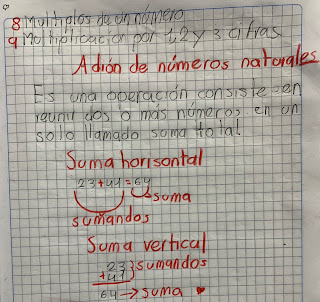 8 Multiplos de un número
9 Multiplicación por 1,2 y 3 cifras
Adión de números naturales
Es una operación consiste en
reunir dos o más números en un
solo llamado suma total
Suma horisontal
23+41=64
suma
sumandos
Suma vertical
23 } sumandos
+41
64 → suma